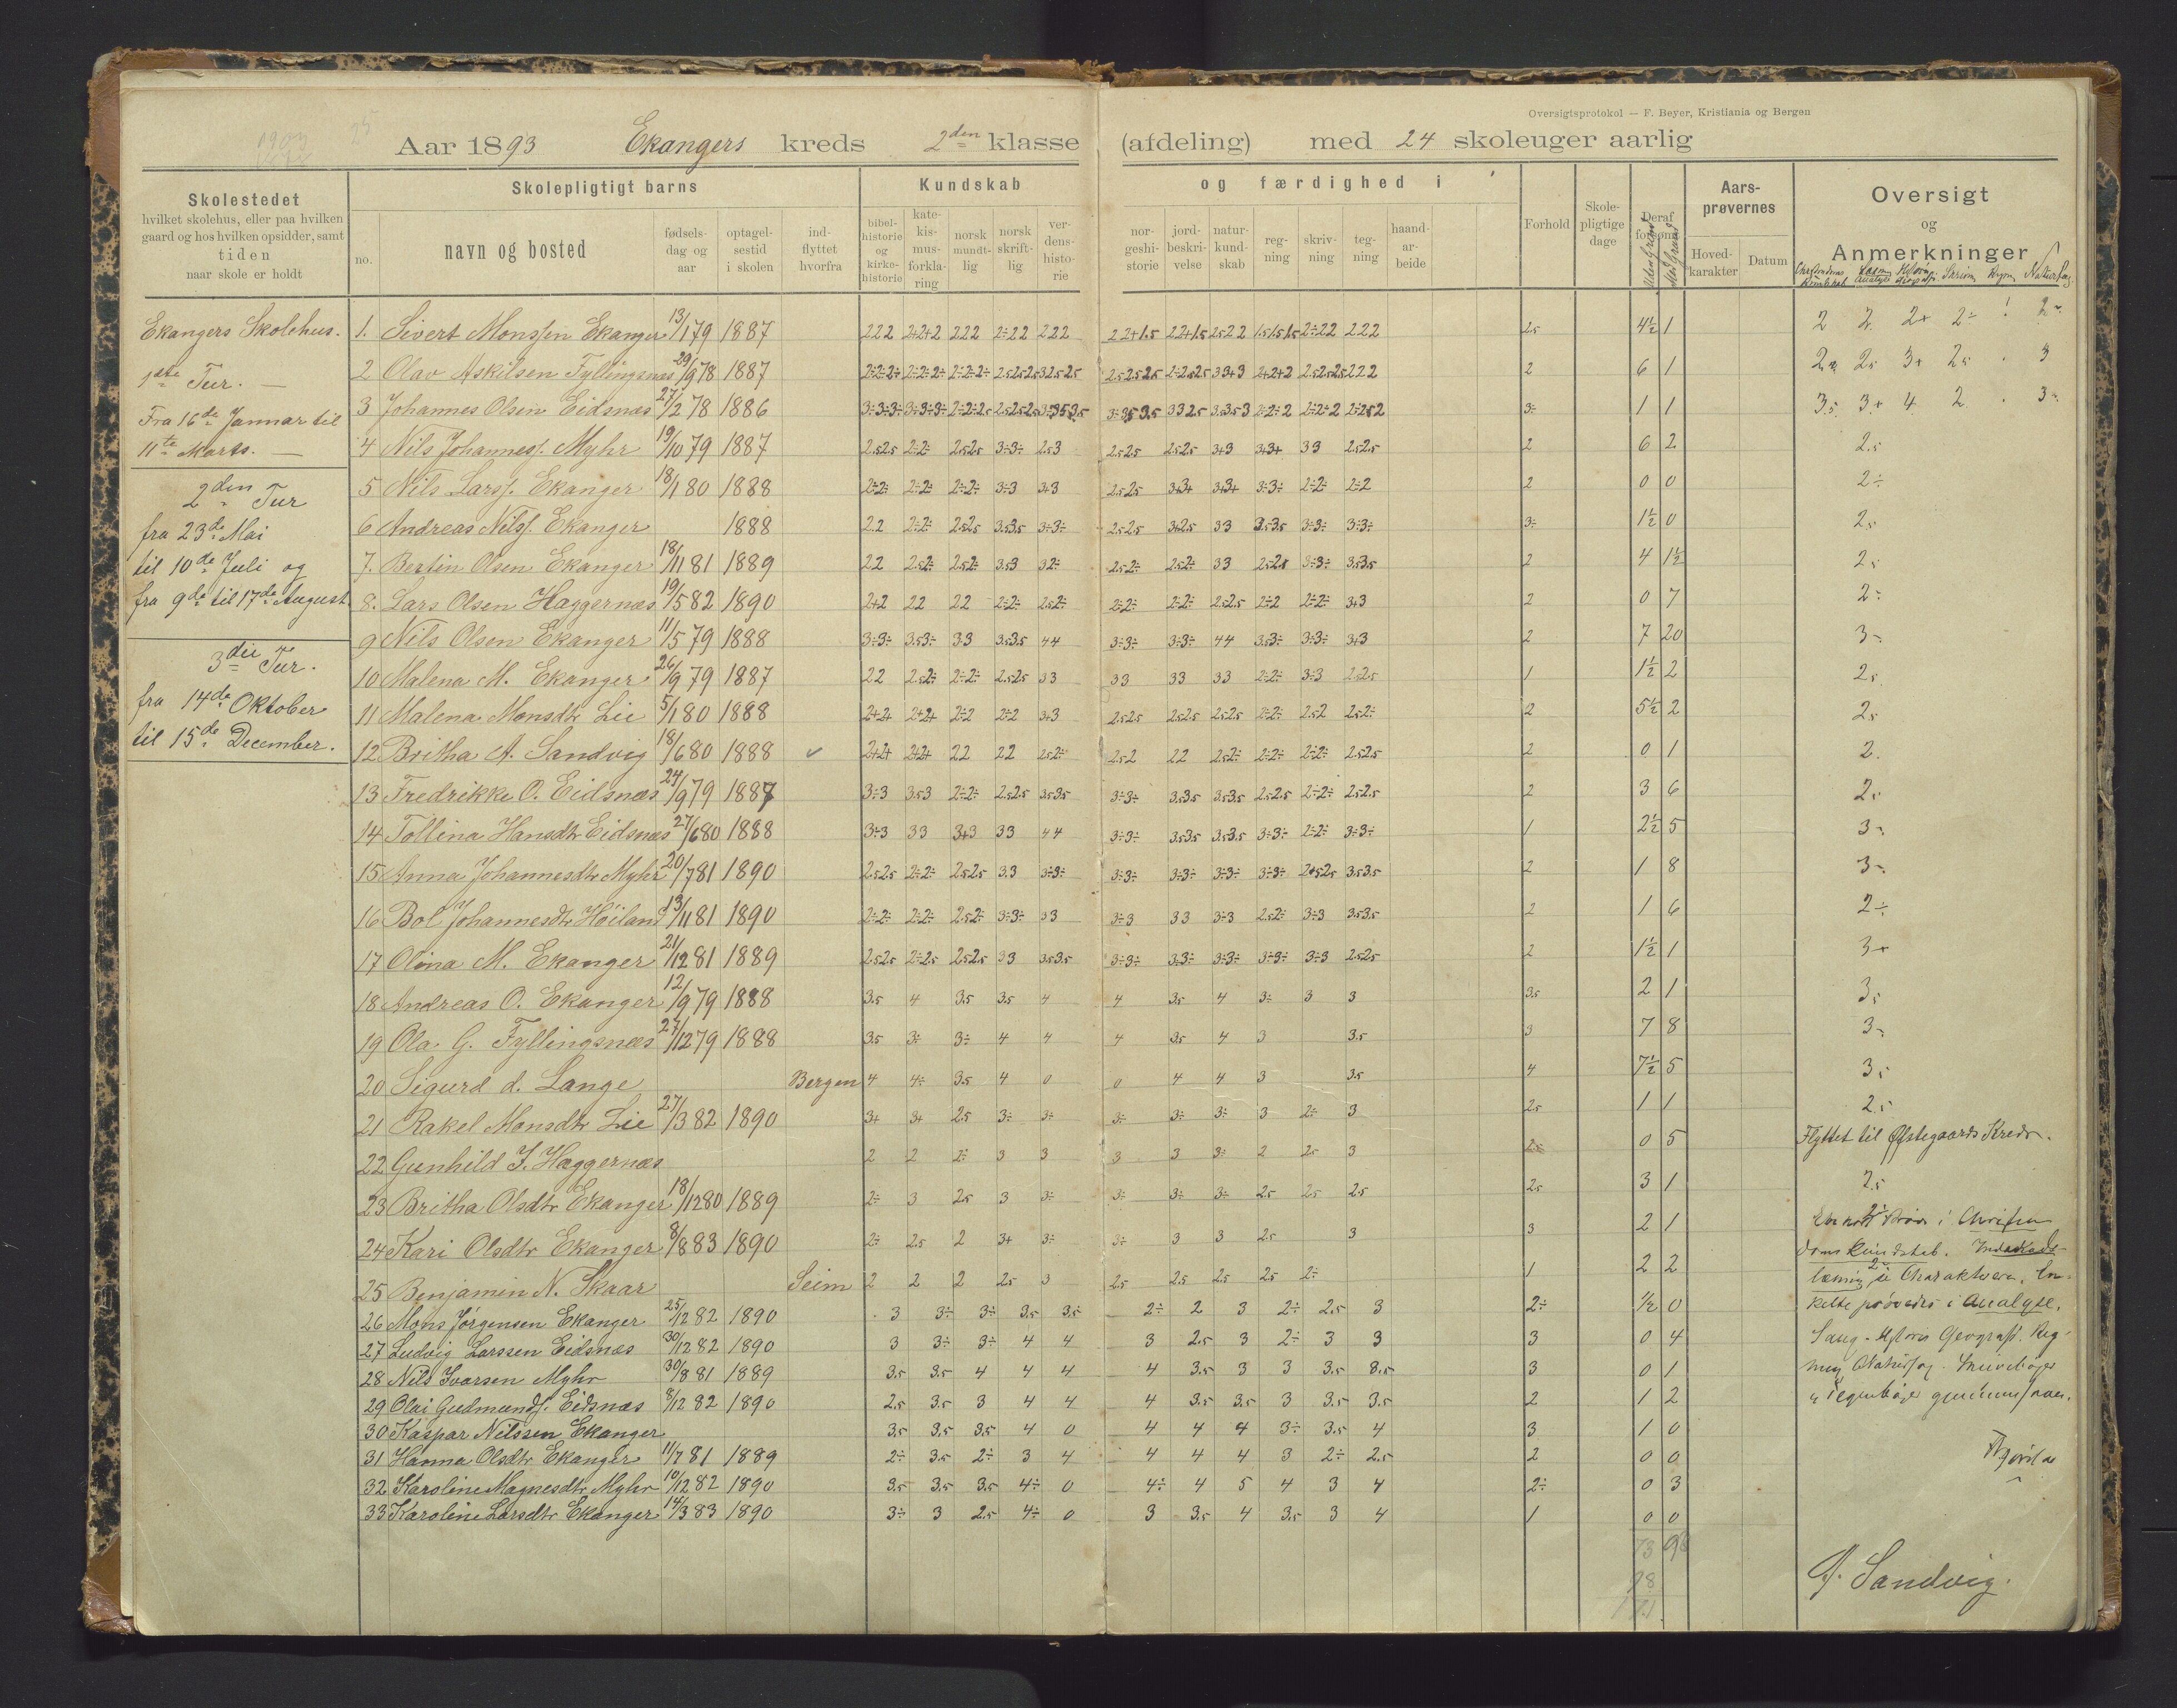 Oversigtsprotokol — F. Beyer, Kristiania og Bergen
Aar 1893 Ekangers kreds 2den klasse (afdeling) med 24 skoleuger aarlig
Skolestedet
hvilket skolehus, eller paa hvilken
gaard og hos hvilken opsidder, samt
tiden
naar skole er holdt
Skolepligtigt barns
no.
navn og bosted
fødsels-
dag og
aar
optagel-
sestid
i skolen
ind-
flyttet
hvorfra
Kundskab og færdighed i
bibel-
historie
og
kirke-
historie
kate-
kis-
mus-
forkla-
ring
norsk
mundt-
lig
norsk
skrift-
lig
ver-
dens-
histo-
rie
nor-
geshi-
storie
jord-
beskri-
velse
natur-
kund-
skab
reg-
ning
skriv-
ning
teg-
ning
haand-
ar-
beide
Forhold
Skole-
pligtige
dage
Deraf
forsømt
Uden Grund
Med Grund
Aars-
prøvernes
Hoved-
karakter
Datum
Oversigt
og
Anmerkninger
Ekangers Skolehus.
1ste Tur. —
Fra 16de Januar til
11te Marts. —
2den Tur
fra 23de Mai
til 10de Juli og
fra 9de til 17de August
3die Tur.
fra 14de Oktober
til 15de December.
1. Sivert Monssen Ekanger 13/1 79 1887 222 2+2+2 222 2÷22 222 22+1.5 22+1.5 2.522 1.51.51.5 2÷22 222 2.5 4½ 1 2 2 2+ 2÷
2 Olav Askilsen Fyllingsnæs 29/9 78 1887 2 6 1 2.5 3+ 2.5 3
3 Johannes Olsen Eidsnæs 27/2 78 1886 3÷ 1 1 3.5 3+ 4 2
4 Nils Johannesf. Myhr 19/10 79 1887 2.52.5 2÷2÷ 2.52.5 3÷3÷ 2.53 2.52.5 2.52.5 3+3 3+3+ 33 2.52.5 2 6 2 2.5
5 Nils Larsf. Ekanger 18/1 80 1888 2÷2÷ 2÷2÷ 2÷2÷ 3÷3 3+3 2.52.5 3+3+ 3+3+ 3÷3÷ 2÷2÷ 2÷2 2 0 0 2÷
6 Andreas Nilsf. Ekanger 1888 2.2 2÷2÷ 2.52.5 3.53.5 3÷3÷ 2.52.5 3+2.5 33 3.53.5 3÷3÷ 3÷3÷ 3÷ 1½ 0 2.5
7. Bertin Olsen Ekanger 18/11 81 1889 22 2.52÷ 2.52÷ 3.53 32÷ 2.52÷ 2.52÷ 33 2.52.5 3÷3÷ 3.53.5 2 4 1½ 2.5
8. Lars Olsen Haggernæs 19/5 82 1890 2+2 22 22 2÷2÷ 2.52÷ 2÷2÷ 2÷2÷ 2.52.5 2÷2 2÷2÷ 3+3 2 0 7 2÷
9 Nils Olsen Ekanger 11/5 79 1888 3÷3÷ 3.53÷ 33 3.53.5 44 3÷3÷ 3÷3÷ 44 3.53÷ 3÷3÷ 3+3 2 7 20 3÷
10 Malena M. Ekanger 26/9 79 1887 22 2.52÷ 2÷2÷ 2.52.5 33 33 33 33 2÷2÷ 3÷3 2.52.5 1 1½ 2 2.5
11 Malena Monsdtr Lie 5/1 80 1888 2+2+ 2+2+ 2÷2 2÷2 3+3 2.52.5 2.52.5 2.52.5 2÷2÷ 2.52 2.52÷ 2 5½ 2 2.5
12 Britha A. Sandvig 18/6 80 1888 ✓ 2+2+ 2+2+ 22 22 2.52÷ 2.52 22 2.52÷ 2÷2÷ 2÷2÷ 2.52.5 2 0 1 2.
13 Fredrikke O. Eidsnæs 24/9 79 1887 3÷3 3.53 2÷2÷ 2.52.5 3.53.5 3÷3÷ 3.53.5 3.53.5 2.52.5 2÷2÷ 2.52.5 2 3 6 2.5
14 Tollina Hansdtr Eidsnæs 27/6 80 1888 3÷3 33 3+3 33 44 3÷3÷ 3.53.5 3.53.5 3÷3÷ 2÷2÷ 3÷3÷ 1 2½ 5 3÷
15 Anna Johannesdtr Myhr 20/7 81 1890 2.52.5 2÷2÷ 2.52.5 3.3 3÷3÷ 3÷3÷ 3÷3÷ 3÷3÷ 3÷3÷ 3.53.5 2 1 8 3÷
16 Bol Johannesdtr Høiland 13/11 81 1890 2÷2÷ 2÷2÷ 2.52÷ 3÷3÷ 33 3÷3 33 3÷3 2.52÷ 3÷3 3.53.5 2 1 6 2÷
17 Olina M. Ekanger 21/12 81 1889 2.52.5 2÷2.5 2.52.5 33 3.53.5 3÷3÷ 3.3÷ 3÷3÷ 3÷3÷ 3÷3 2.52.5 2 1½ 1 3+
18 Andreas O. Ekanger 12/9 79 1888 3.5 4 3.5 3.5 4 4 3.5 4 3÷ 3 3 3.5 2 1 3.5
19 Ola G. Fyllingsnæs 27/12 79 1888 3.5 3÷ 3÷ 4 4 4 3.5 4 3 3.5 3 7 8 3÷
20 Sigurd d. Lange Bergen 4 4÷ 3.5 4 0 0 4 4 3 3.5 4 7½ 5 3.5
21 Rakel Monsdtr Lie 27/3 82 1890 3+ 3+ 2.5 3÷ 3÷ 3÷ 3÷ 3÷ 3 2÷ 3 2.5 1 1 2.5
22 Gunhild J. Haggernæs 2 2 2÷ 3 3 3 3 3÷ 2 2.5 3 2.5 0 5 Flyttet til Øfstegaards Kreds.
23 Britha Olsdtr Ekanger 18/12 80 1889 2÷ 3 2.5 3 3÷ 3÷ 3÷ 3÷ 2.5 2.5 2.5 2.5 3 1 2.5
24 Kari Olsdtr Ekanger 8/8 83 1890 2÷ 2.5 2 3+ 3÷ 3÷ 3 3 2.5 3 3 2 1
25 Benjamin N. Skaar Seim 2 2 2 2.5 3 2.5 2.5 2.5 2.5 2÷ 1 2 2
26 Mons Jørgensen Ekanger 25/12 82 1890 3 3÷ 3÷ 3.5 3.5 2÷ 2 3 2÷ 2.5 3 2÷ ½ 0
27 Ludvig Larssen Eidsnæs 30/12 82 1890 3 3÷ 3÷ 4 4 3 2.5 3 2÷ 3 3 3 0 4
28 Nils Ivarsen Myhr 30/8 81 1889 3.5 3.5 4 4 4 4 3.5 3 3 3.5 3.5 3 0 1
29 Olai Gudmundf. Eidsnæs 8/12 82 1890 2.5 3.5 3 4 4 4 3.5 3.5 3 3.5 3.5 2 1 2
30 Kaspar Nilssen Ekanger 3.5 3.5 3.5 4 0 4 4 4 3÷ 3.5 4 3 1 0
31 Hanna Olsdtr Ekanger 11/7 81 1889 2÷ 3.5 2÷ 3 4 4 4 4 3 2÷ 2.5 2 0 0
32 Karoline Magnesdtr Myhr 10/12 82 1890 3.5 3.5 3.5 4÷ 0 4÷ 4 5 4 3 4 2÷ 0 3
33 Karoline Larsdtr Ekanger 14/3 83 1890 3÷ 3 2.5 4÷ 0 3 3.5 4 3.5 3 4 1 0 0
73 98
A. Sandvig.